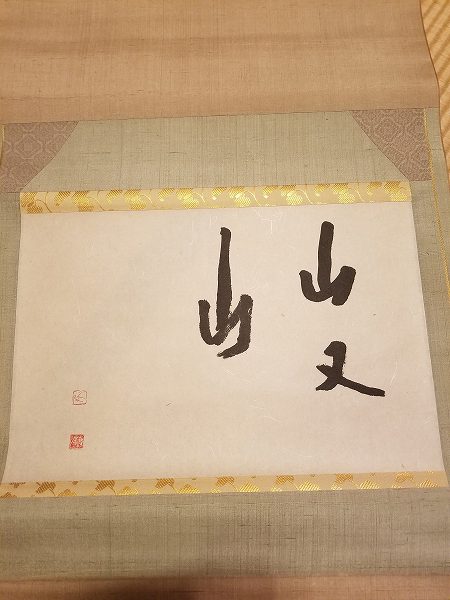 山又
山